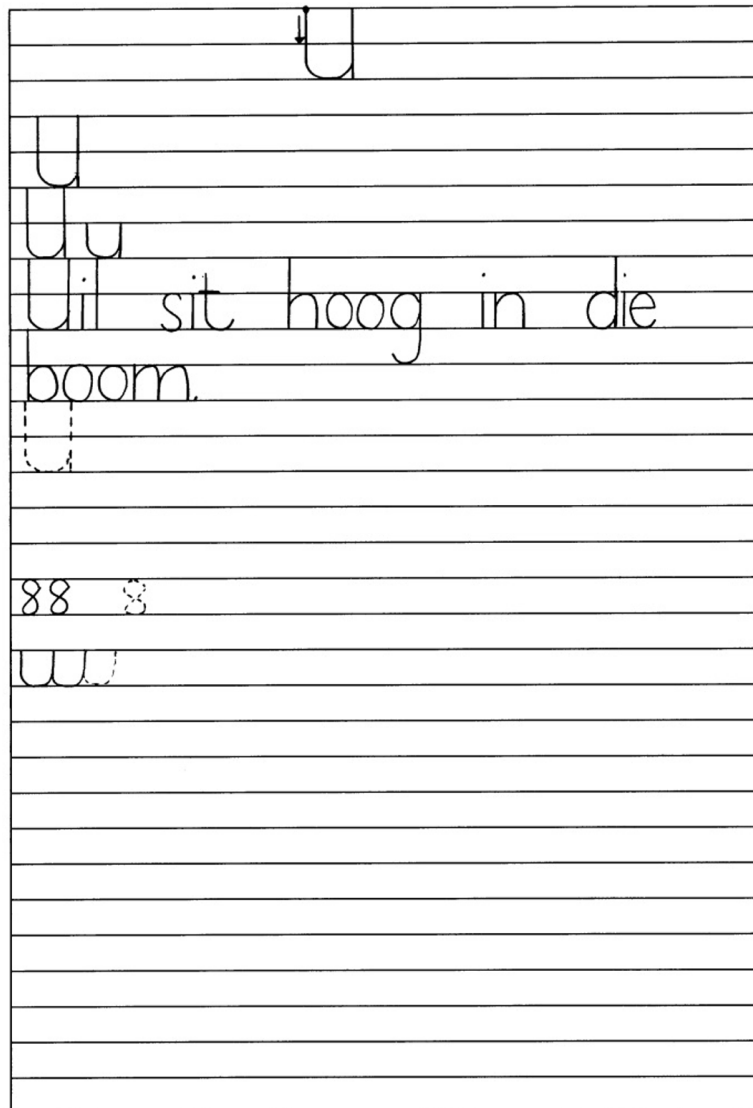 U
U
U u
Uil sit hoog in die
boom.
U
88 8
uuu